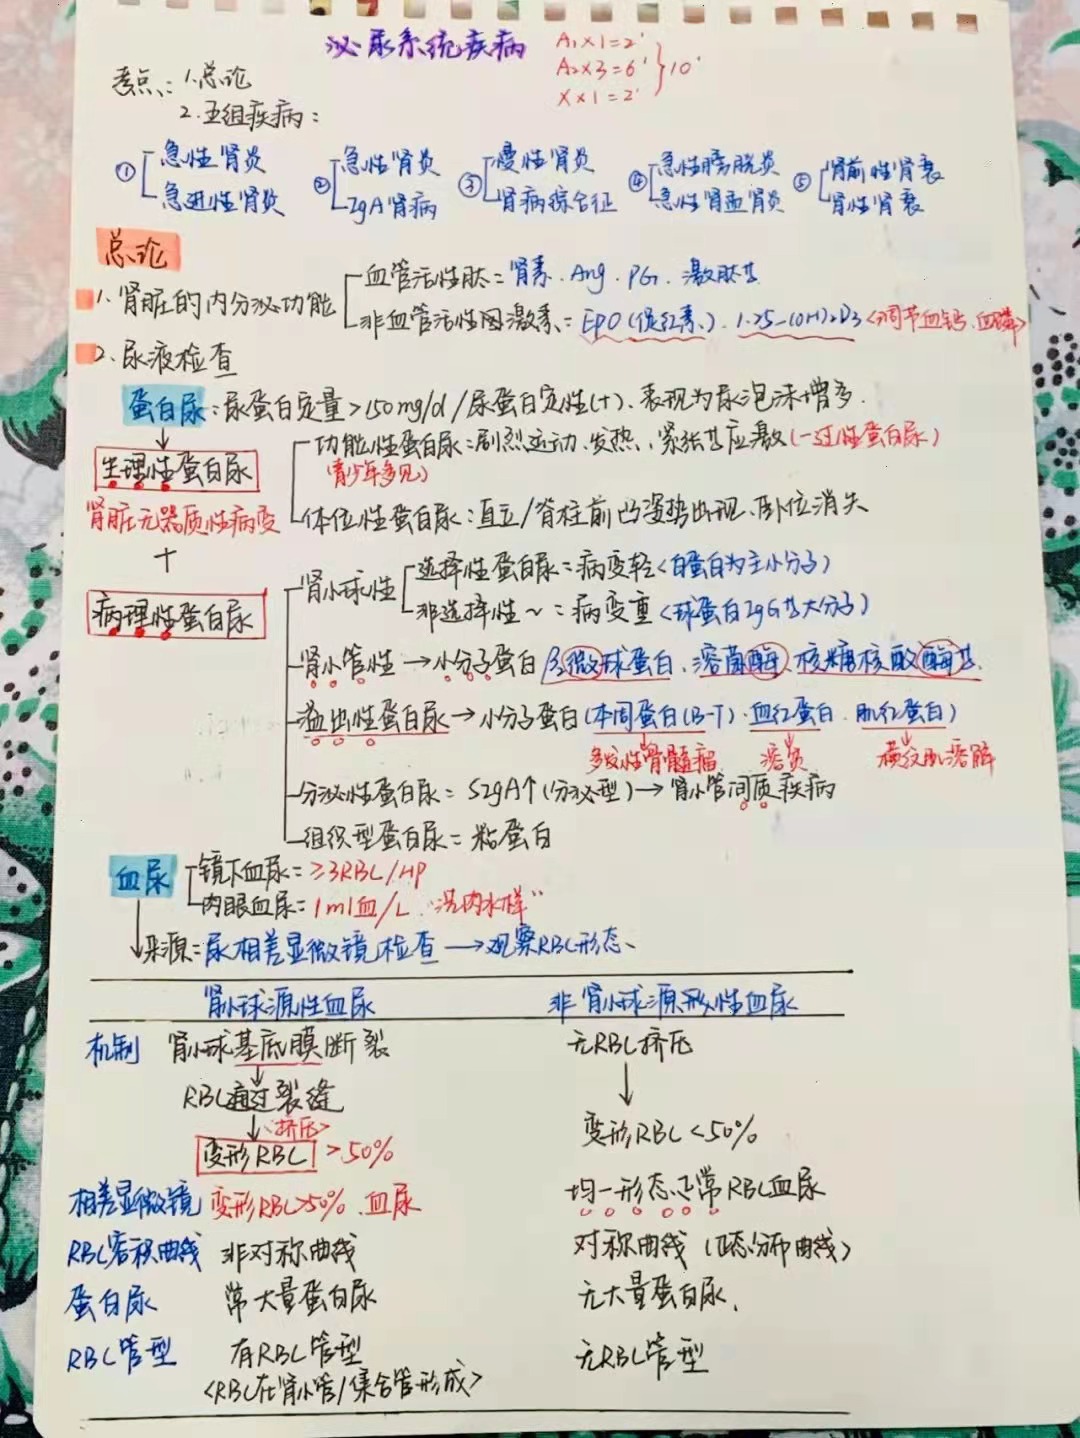 泌尿系统疾病
A₁×1=2'
A₂×3=6' }10'
X×1=2'
考点:1.总论
2.五组疾病:
① 急性肾炎 急进性肾炎
② 急性肾炎 IgA肾病
③ 慢性肾炎 肾病综合征
④ 急性膀胱炎 急性肾盂肾炎
⑤ 肾前性肾衰 肾性肾衰
总论
1.肾脏的内分泌功能
血管活性肽:肾素.Ang.PG.激肽等
非血管活性因激素:EPO(促红素).1.25-(OH)₂D₃<调节血钙.血磷>
2.尿液检查
蛋白尿:尿蛋白定量>150mg/d/尿蛋白定性(+).表现为尿泡沫增多.
生理性蛋白尿
肾脏无器质性病变
功能性蛋白尿:剧烈运动.发热.紧张等应激(一过性蛋白尿)
(青少年多见)
体位性蛋白尿:直立/脊柱前凸姿势出现、卧位消失
+
病理性蛋白尿
肾小球性
选择性蛋白尿=病变轻<白蛋白为主小分子>
非选择性~=病变重<球蛋白IgG等大分子>
肾小管性→小分子蛋白 β₂微球蛋白.溶菌酶.核糖核酸酶等.
溢出性蛋白尿→小分子蛋白(本周蛋白(B-J).血红蛋白.肌红蛋白)
多发性骨髓瘤 溶贫 横纹肌溶解
分泌性蛋白尿=SIgA↑(分泌型)→肾小管间质疾病
组织型蛋白尿=粘蛋白
血尿
镜下血尿=≥3RBL/HP
肉眼血尿=1ml血/L."洗肉水样"
来源=尿相差显微镜检查→观察RBL形态、
肾小球源性血尿 非肾小球源形性血尿
机制 肾小球基底膜断裂 无RBL挤压
↓ ↓
RBL通过裂缝
↓<挤压> 变形RBL<50%
变形RBL >50%
相差显微镜 变形RBL>50%.血尿 均一形态正常RBL血尿
RBL容积曲线 非对称曲线 对称曲线(正态分布曲线>
蛋白尿 常大量蛋白尿 无大量蛋白尿.
RBL管型 有RBL管型 无RBL管型
<RBL在肾小管/集合管形成>